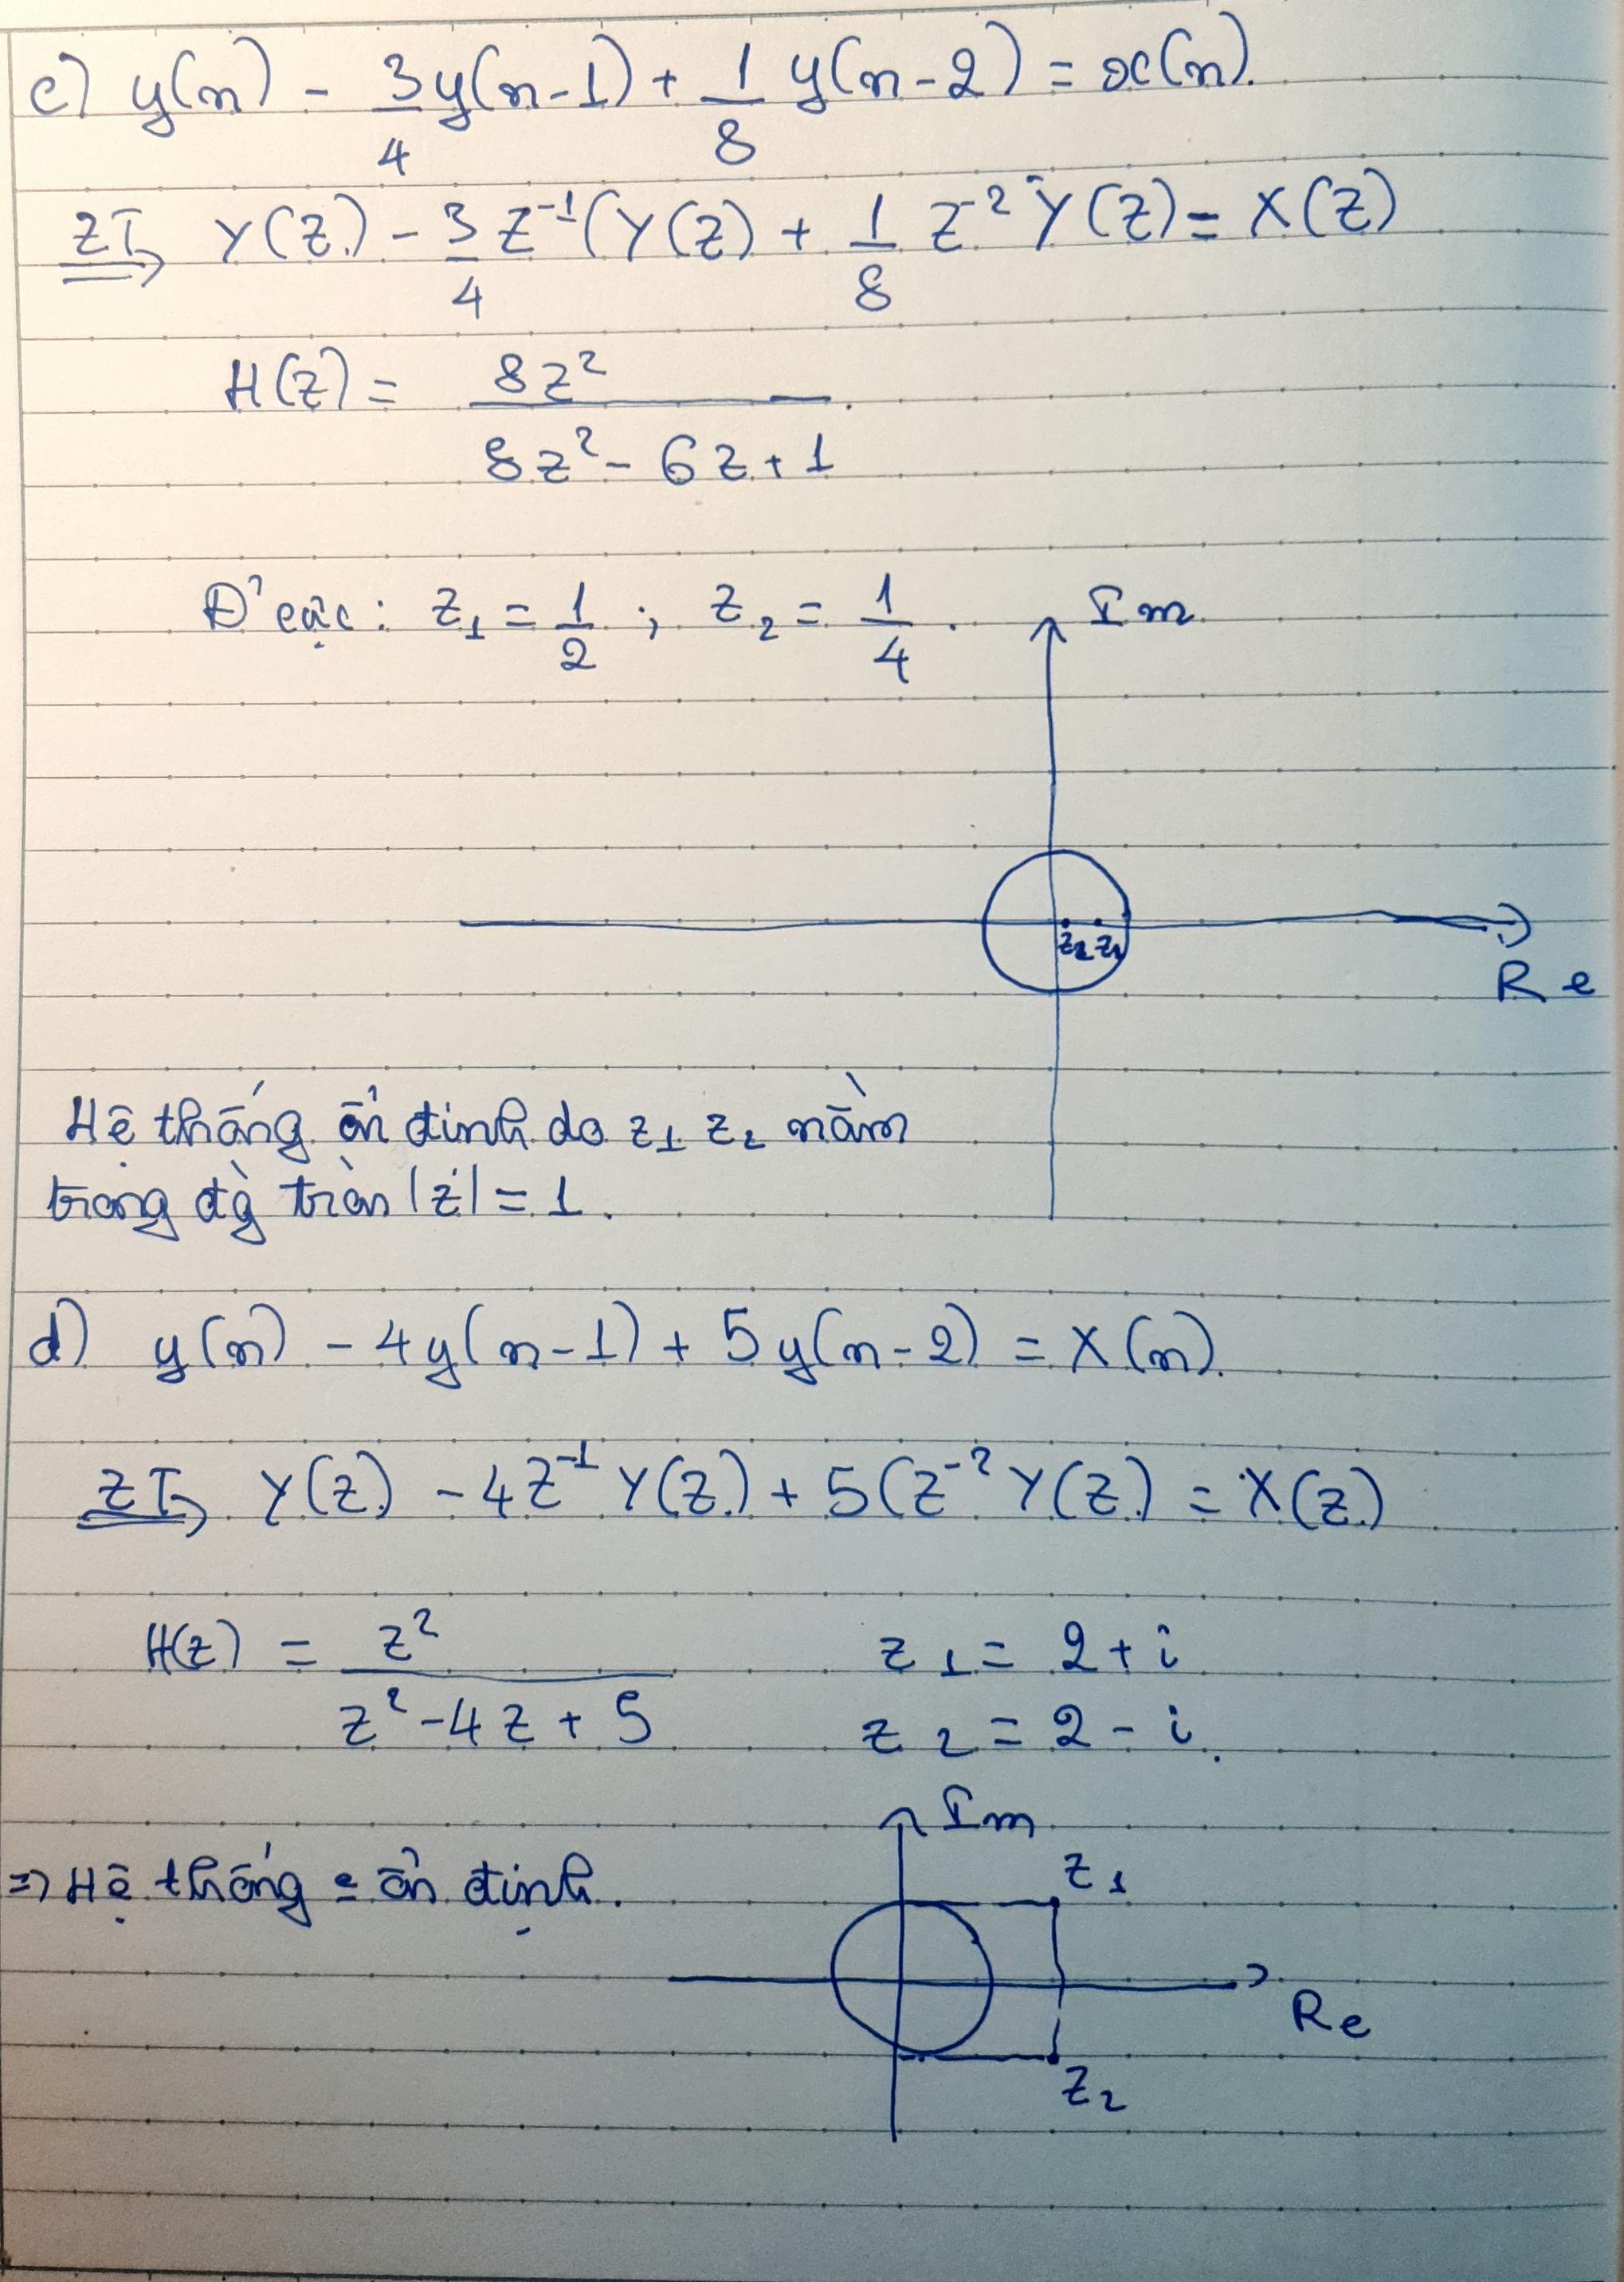 c) y(n) - 3/4 y(n-1) + 1/8 y(n-2) = x(n).
ZT⇒ Y(Z) - 3/4 Z⁻¹(Y(Z) + 1/8 Z⁻² Y(Z) = X(Z)
H(Z) = 8Z² / (8Z² - 6Z + 1)
Đ' cực: Z₁ = 1/2 ; Z₂ = 1/4 .
Im
Z₂ Z₁
Re
Hệ thống ổn đinh do Z₁ Z₂ nằm
trong đg̀ tròn |Z| = 1.
d) y(n) - 4y(n-1) + 5y(n-2) = X(n).
ZT⇒ Y(Z) - 4Z⁻¹ Y(Z) + 5(Z⁻² Y(Z) = X(Z)
H(Z) = Z² / (Z² - 4Z + 5)
Z₁ = 2 + i
Z₂ = 2 - i.
Im
Z₁
⇒ Hệ thống ổn định.
Re
Z₂